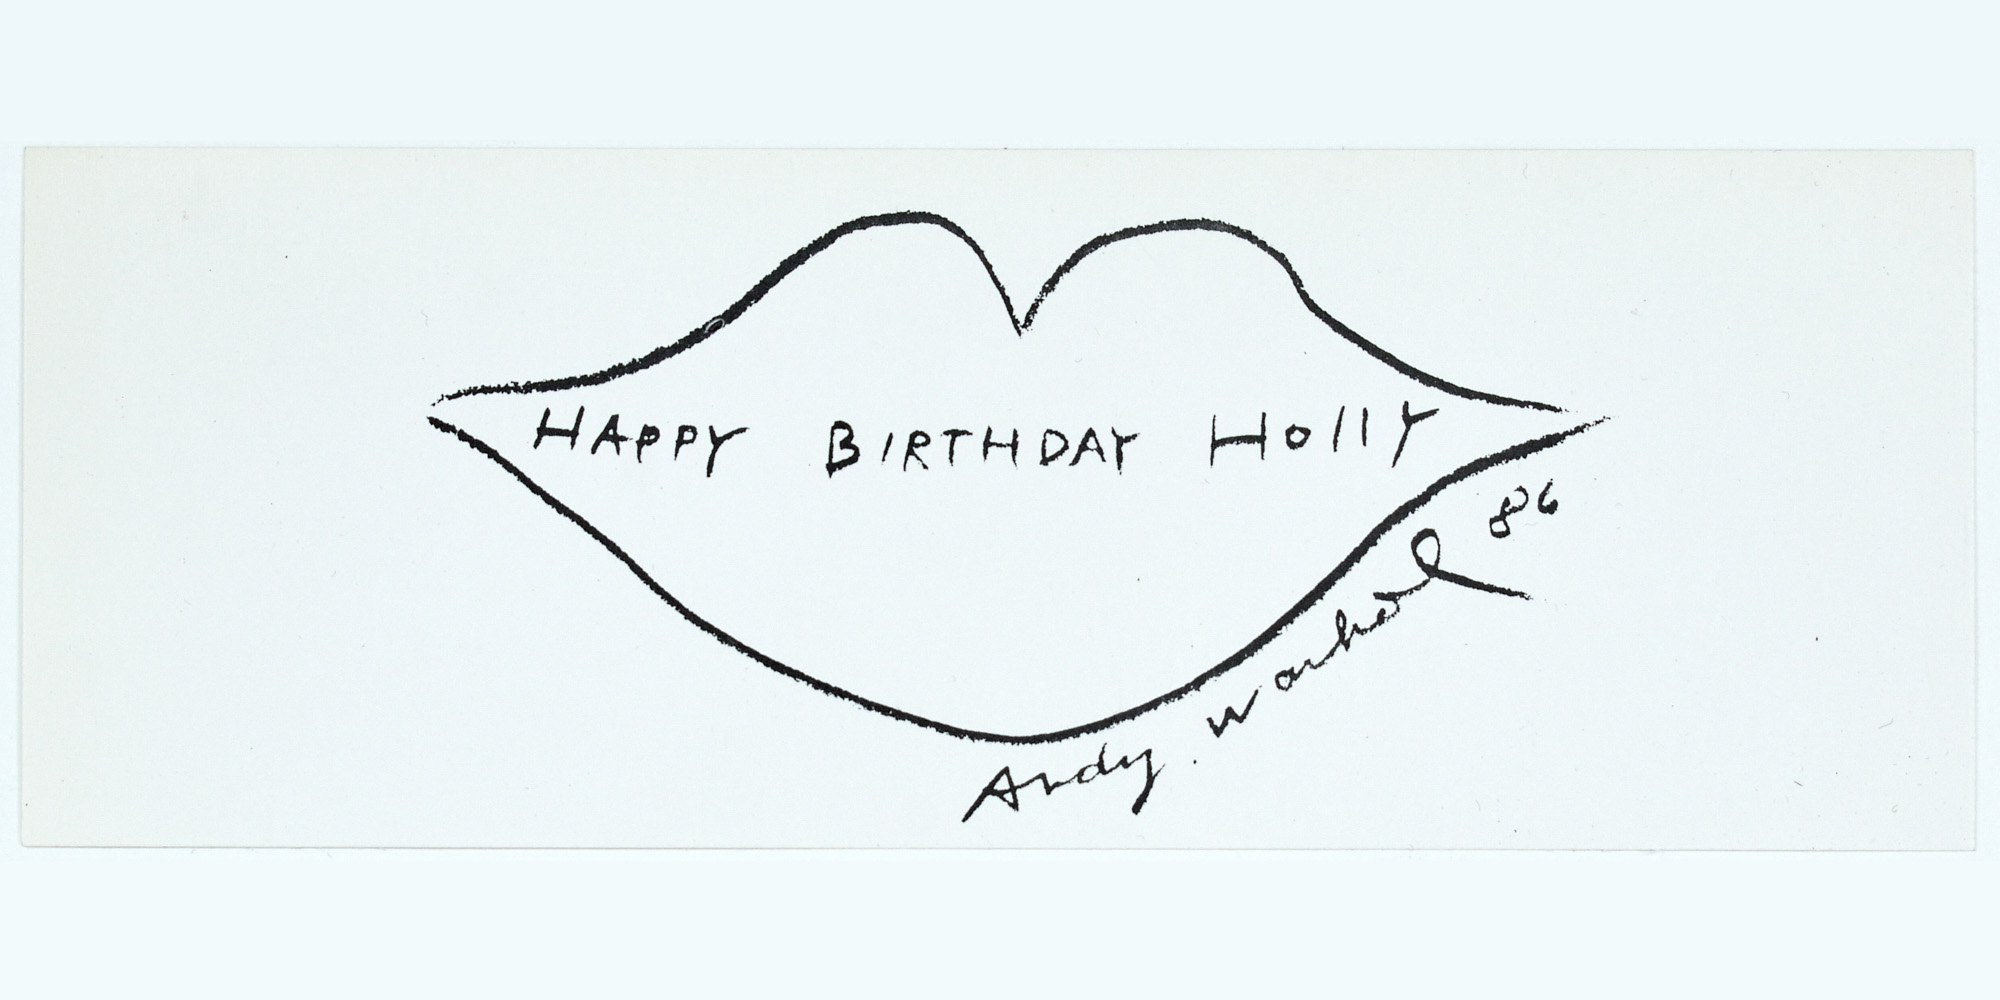 HAPPY BIRTHDAY HollY
Andy Warhol 86